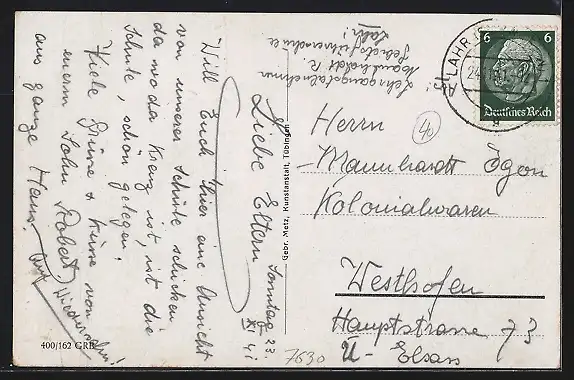 Lehrgangsteilnehmer
Mannhardt R.
Gebietsführerschule
Lahr!
Sonntag 23.
XI. 41
Liebe Eltern
Will Euch hier eine Ansicht
von unserer Schule schicken
da wo das Kreuz ist, ist die
Schule, schön gelegen.
Viele Grüsse & Küsse von
eurem Sohn Robert.
aus ganzem Haus.
Auf Wiedersehn!
400/162 GRB
Gebr. Metz, Kunstanstalt, Tübingen
Abs.
LAHR
24.
6 6
Deutsches Reich
40
Herrn
Mannhardt Ogon
Kolonialwaren
Westhofen
Hauptstrasse 73
U- Elsass
7630